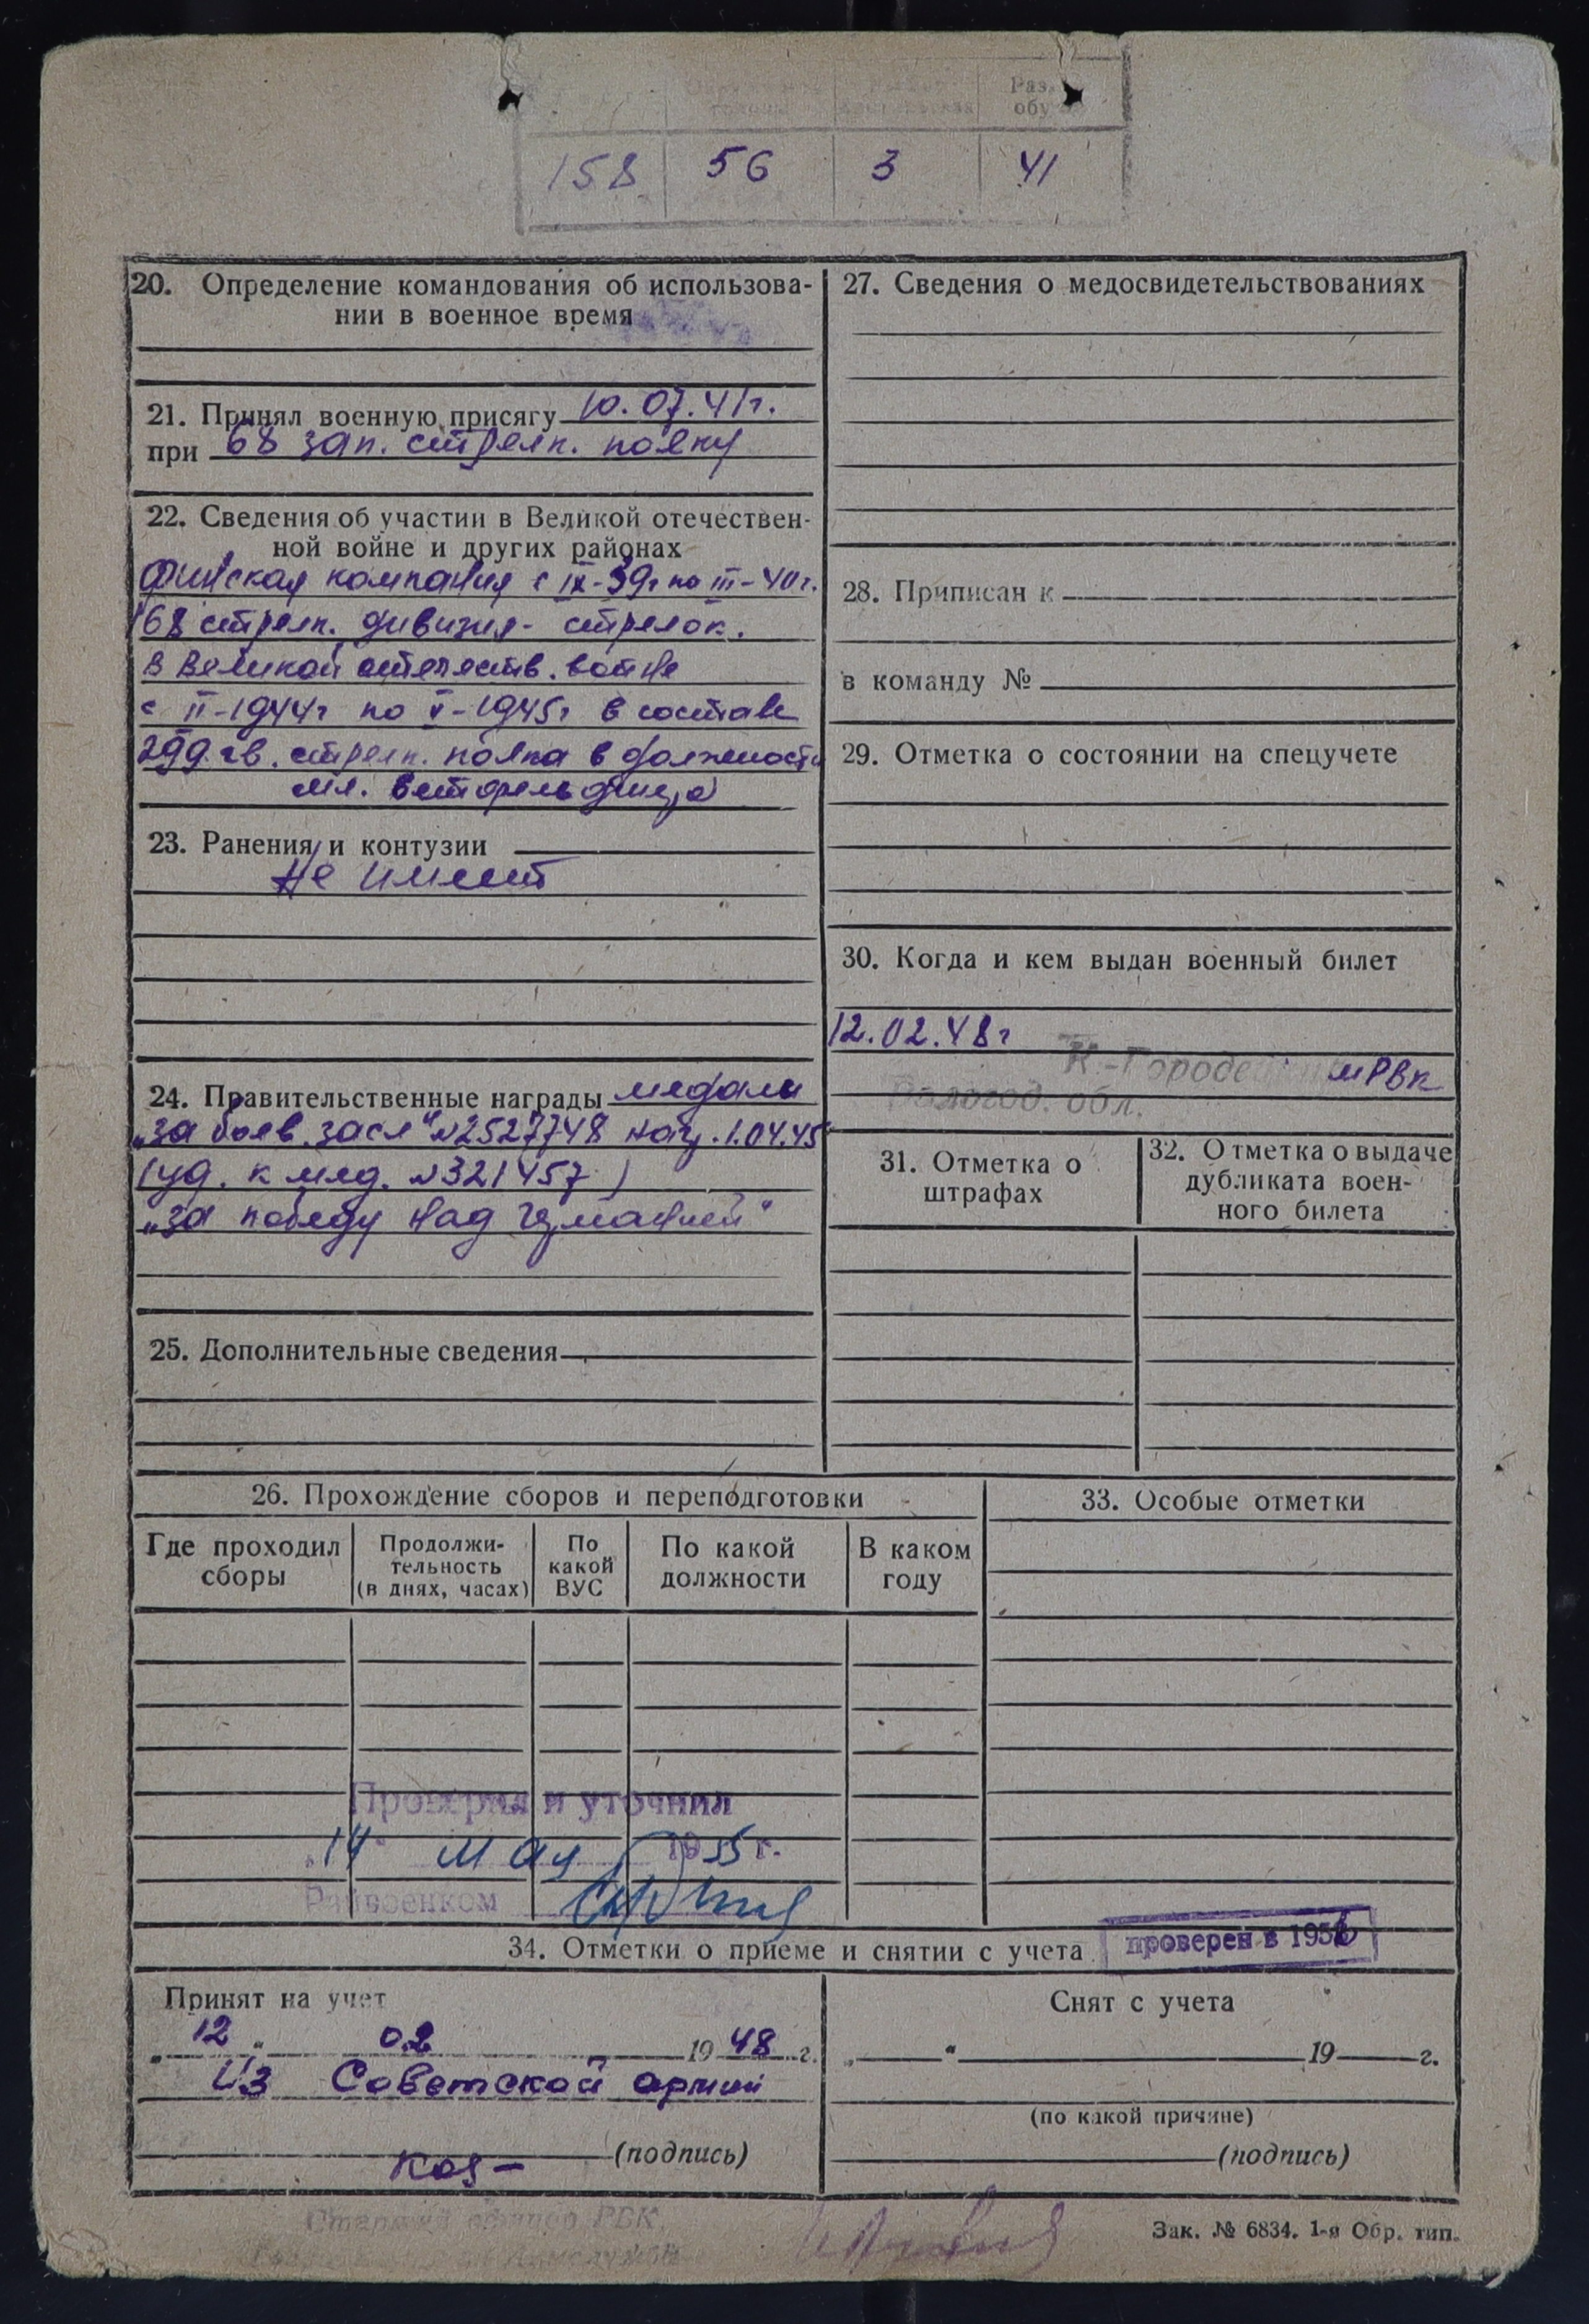 Раз.
обу
158 56 3 41
20. Определение командования об использова-
нии в военное время
21. Принял военную присягу 10.07.41г.
при 68 зап. стрелк. полку
22. Сведения об участии в Великой отечествен-
ной войне и других районах
Финская компания с IX-39г по III-40г.
168 стрелк. дивизия - стрелок.
в Великой отечеств. войне
с II-1944г по V-1945г в составе
299 гв. стрелк. полка в должности
мл. ветфельдшера
23. Ранения и контузии
Не имеет
24. Правительственные награды медали
„за боев. засл" №2527748 1.04.45
(уд. к мед. №321457)
„за победу над Германией"
25. Дополнительные сведения
26. Прохождение сборов и переподготовки
Где проходил
сборы
Продолжи-
тельность
(в днях, часах)
По
какой
ВУС
По какой
должности
В каком
году
Проверил и уточнил
„14" мая 1955 г.
Райвоенком
27. Сведения о медосвидетельствованиях
28. Приписан к
в команду №
29. Отметка о состоянии на спецучете
30. Когда и кем выдан военный билет
12.02.48г
К.-Городе РВК
Вологод. обл.
31. Отметка о
штрафах
32. Отметка о выдаче
дубликата воен-
ного билета
33. Особые отметки
34. Отметки о приеме и снятии с учета
проверен в 1956
Принят на учет
„12" 02 1948 г.
Из Советской армии
(подпись)
Снят с учета
„ " 19 г.
(по какой причине)
(подпись)
Старший офицер РВК
Зак. № 6834. 1-я Обр. тип.